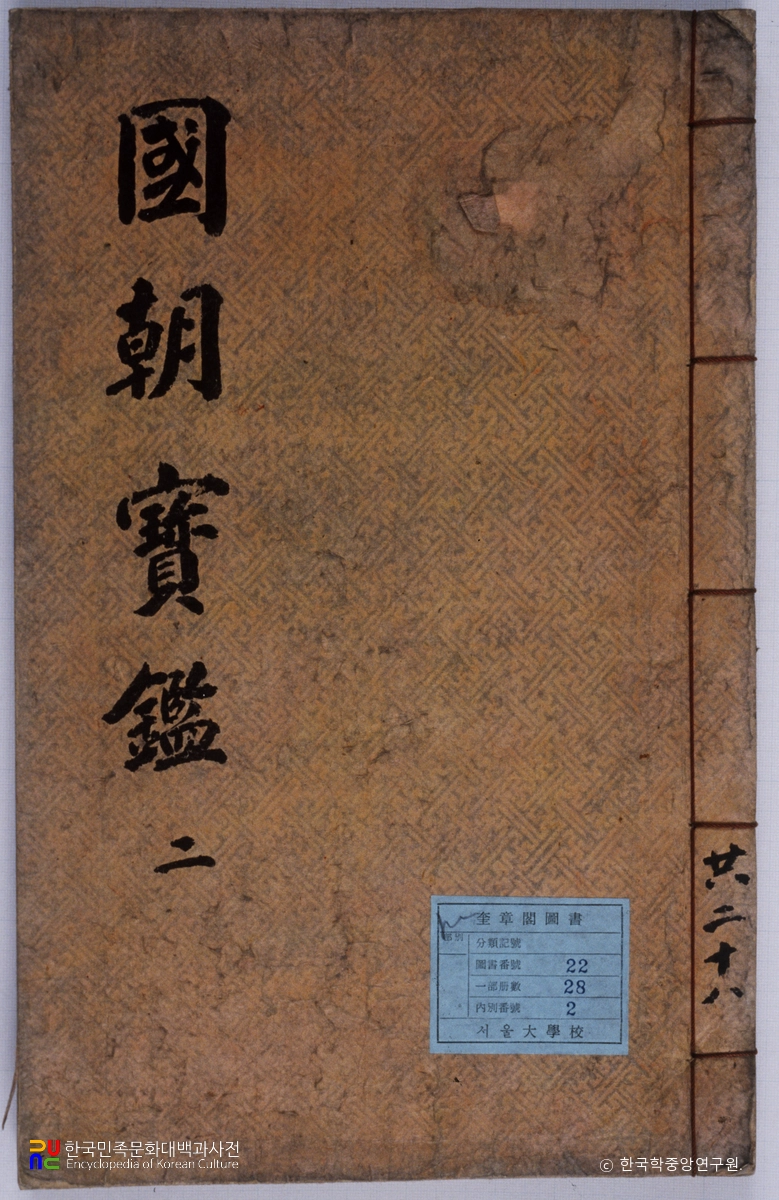 國朝寶鑑 二
共二十八
奎章閣圖書
部別
分類記號
圖書番號 22
一部冊數 28
內別番號 2
서울大學校
한국민족문화대백과사전
Encyclopedia of Korean Culture
© 한국학중앙연구원